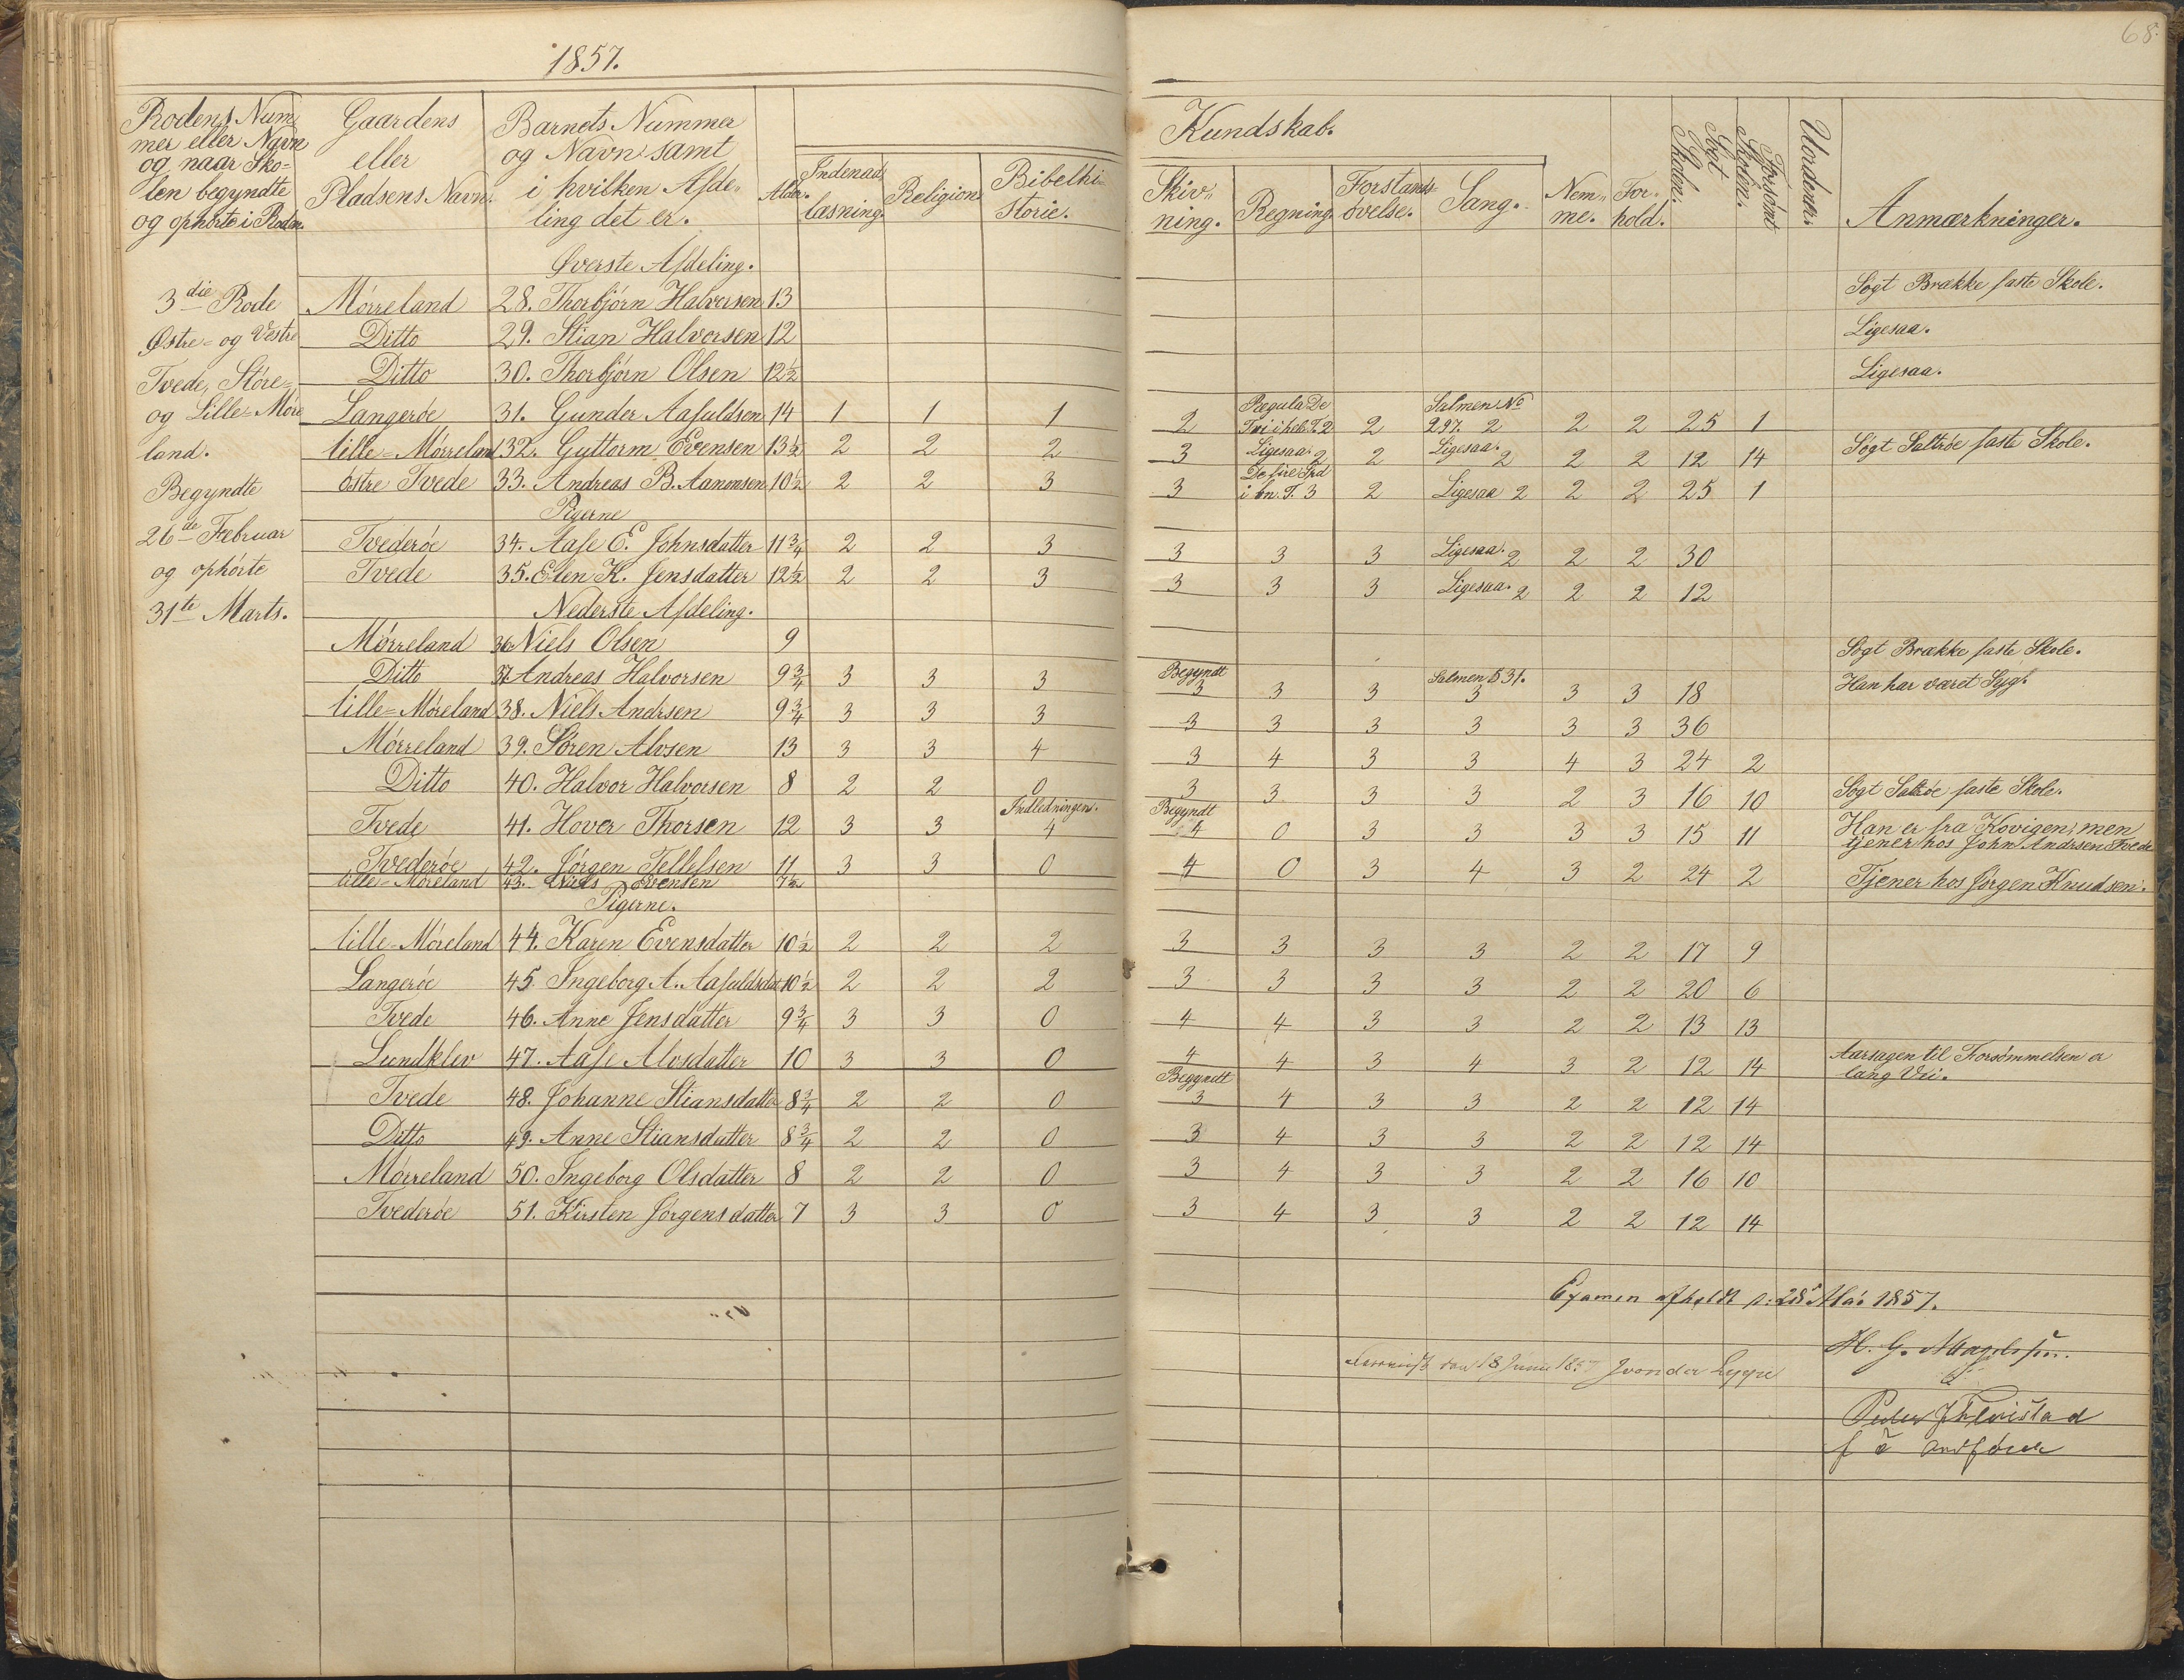 1857.
68.
Rodens Num
mer eller Navn
og naar Sko=
len begyndte
og ophörte i Roden.
Gaardens
eller
Pladsens Navn.
Barnets Nummer
og Navn samt
i hvilken Afde„
ling det er.
Alder.
Indenad
læsning.
Religion
Bibelhi=
storie.
Kundskab.
Skiv„
ning.
Regning.
Forstands
övelse.
Sang.
Nem„
me.
For„
hold.
Sögt
Skolen.
Forsömt
Skolen.
Uordener.
Anmærkninger.
3die Rode
Östre= og Vestre
Tvede, Störe=
og Lille=Möre
land.
Begyndte
26de Februar
og ophörte
31te Marts.
Øverste Afdeling.
Mörreland 28. Thorbjörn Halvorsen 13 Sögt Brække faste Skole.
Ditto 29. Stian Halvorsen 12 Ligesaa.
Ditto 30. Thorbjörn Olsen 12½ Ligesaa.
Langeröe 31. Gunder Aasuldsen 14 1 1 1 2 Regula De Tri i hele T. 2 2 Salmen No 297. 2 2 2 25 1
Lille=Mörreland 32. Guttorm Evensen 13½ 2 2 2 3 Ligesaa. 2 2 Ligesaa. 2 2 2 12 14 Sögt Saltröe faste Skole.
östre Tvede 33. Andreas B. Aanonsen 10½ 2 2 3 3 De fire Spd i bn. T. 3 2 Ligesaa 2 2 2 25 1
Pigerne
Tvederöe 34. Aase E. Johnsdatter 11¾ 2 2 3 3 3 3 Ligesaa. 2 2 2 30
Tvede 35. Elen K. Jensdatter 12½ 2 2 3 3 3 3 Ligesaa. 2 2 2 12
Nederste Afdeling.
Mörreland 36 Niels Olsen 9 Sögt Brække faste Skole.
Ditto 37 Andreas Halvorsen 9¾ 3 3 3 Begyndt 3 3 3 Salmen 531. 3 3 3 18 Han har været Syg.
Lille=Möreland 38. Niels Andrsen 9¾ 3 3 3 3 3 3 3 3 3 36
Mörreland 39. Sören Alvsen 13 3 3 4 3 4 3 3 4 3 24 2
Ditto 40. Halvor Halvorsen 8 2 2 0 3 3 3 3 2 3 16 10 Sögt Saltröe faste Skole.
Tvede 41. Hover Thorsen 12 3 3 Indledningen. 4 Begyndt 4 0 3 3 3 3 15 11 Han er fra Kovigen, men
tjener hos John Andrsen Tvede
Tvederöe 42. Jörgen Tellefsen 11 3 3 0 4 0 3 4 3 2 24 2 Tjener hos Jörgen Knudsen.
Lille=Möreland 43. Niels Evensen 7½
Pigerne.
Lille=Möreland 44. Karen Evensdatter 10½ 2 2 2 3 3 3 3 2 2 17 9
Langeröe 45. Ingeborg A. Aasuldsdat 10½ 2 2 2 3 3 3 3 2 2 20 6
Tvede 46. Anne Jensdatter 9¾ 3 3 0 4 4 3 3 2 2 13 13
Lundklev 47. Aase Alvsdatter 10 3 3 0 4 4 3 4 3 2 12 14 Aarsagen til Forsömmelsen er
lang Vei.
Tvede 48. Johanne Stiansdatter 8¾ 2 2 0 Begyndt 3 4 3 3 2 2 12 14
Ditto 49. Anne Stiansdatter 8¾ 2 2 0 3 4 3 3 2 2 12 14
Mörreland 50. Ingeborg Olsdatter 8 2 2 0 3 4 3 3 2 2 16 10
Tvederöe 51. Kirsten Jörgensdatter 7 3 3 0 3 4 3 3 2 2 12 14
Examen afholdt d: 28 Mai 1857.
den 18 Juni 1857 J von der Lippe